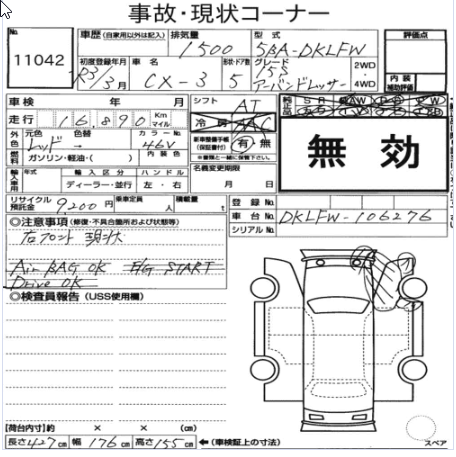 事故・現状コーナー
No. 11042
車歴 (自家用以外は記入) 排気量 1500 型式 5BA-DKLFW 評価点
初度登録年月 R3/3月 車名 CX-3 形状・ドア数 5 グレード 15S アーバンドレッサー 2WD・4WD 内装補助評価
車検 年 月 シフト AT
走行 16,890 Km マイル 冷房 AC
外色 元色 レッド 色替 → カラーNo. 46V 新車整備手帳(保証書付) 有・無
燃料 ガソリン・軽油・( ) 内装色 (書類と一緒に保管下さい)
無効
輸入車 年式 輸入区分 ハンドル 名義変更期限
ディーラー・並行 左・右 月 日
リサイクル預託金 9,200円 乗車定員 人 積載量 t 登録No.
車台No. DKLFW-106276
シリアルNo.
◎注意事項 (修復・不具合箇所および状態等)
右フロント 現状
Air BAG OK E/G START
Drive OK
◎検査員報告 (USS使用欄)
【荷台内寸】 × × (cm)
長さ 427cm 幅 176cm 高さ 155cm ←(車検証上の寸法)
スペア